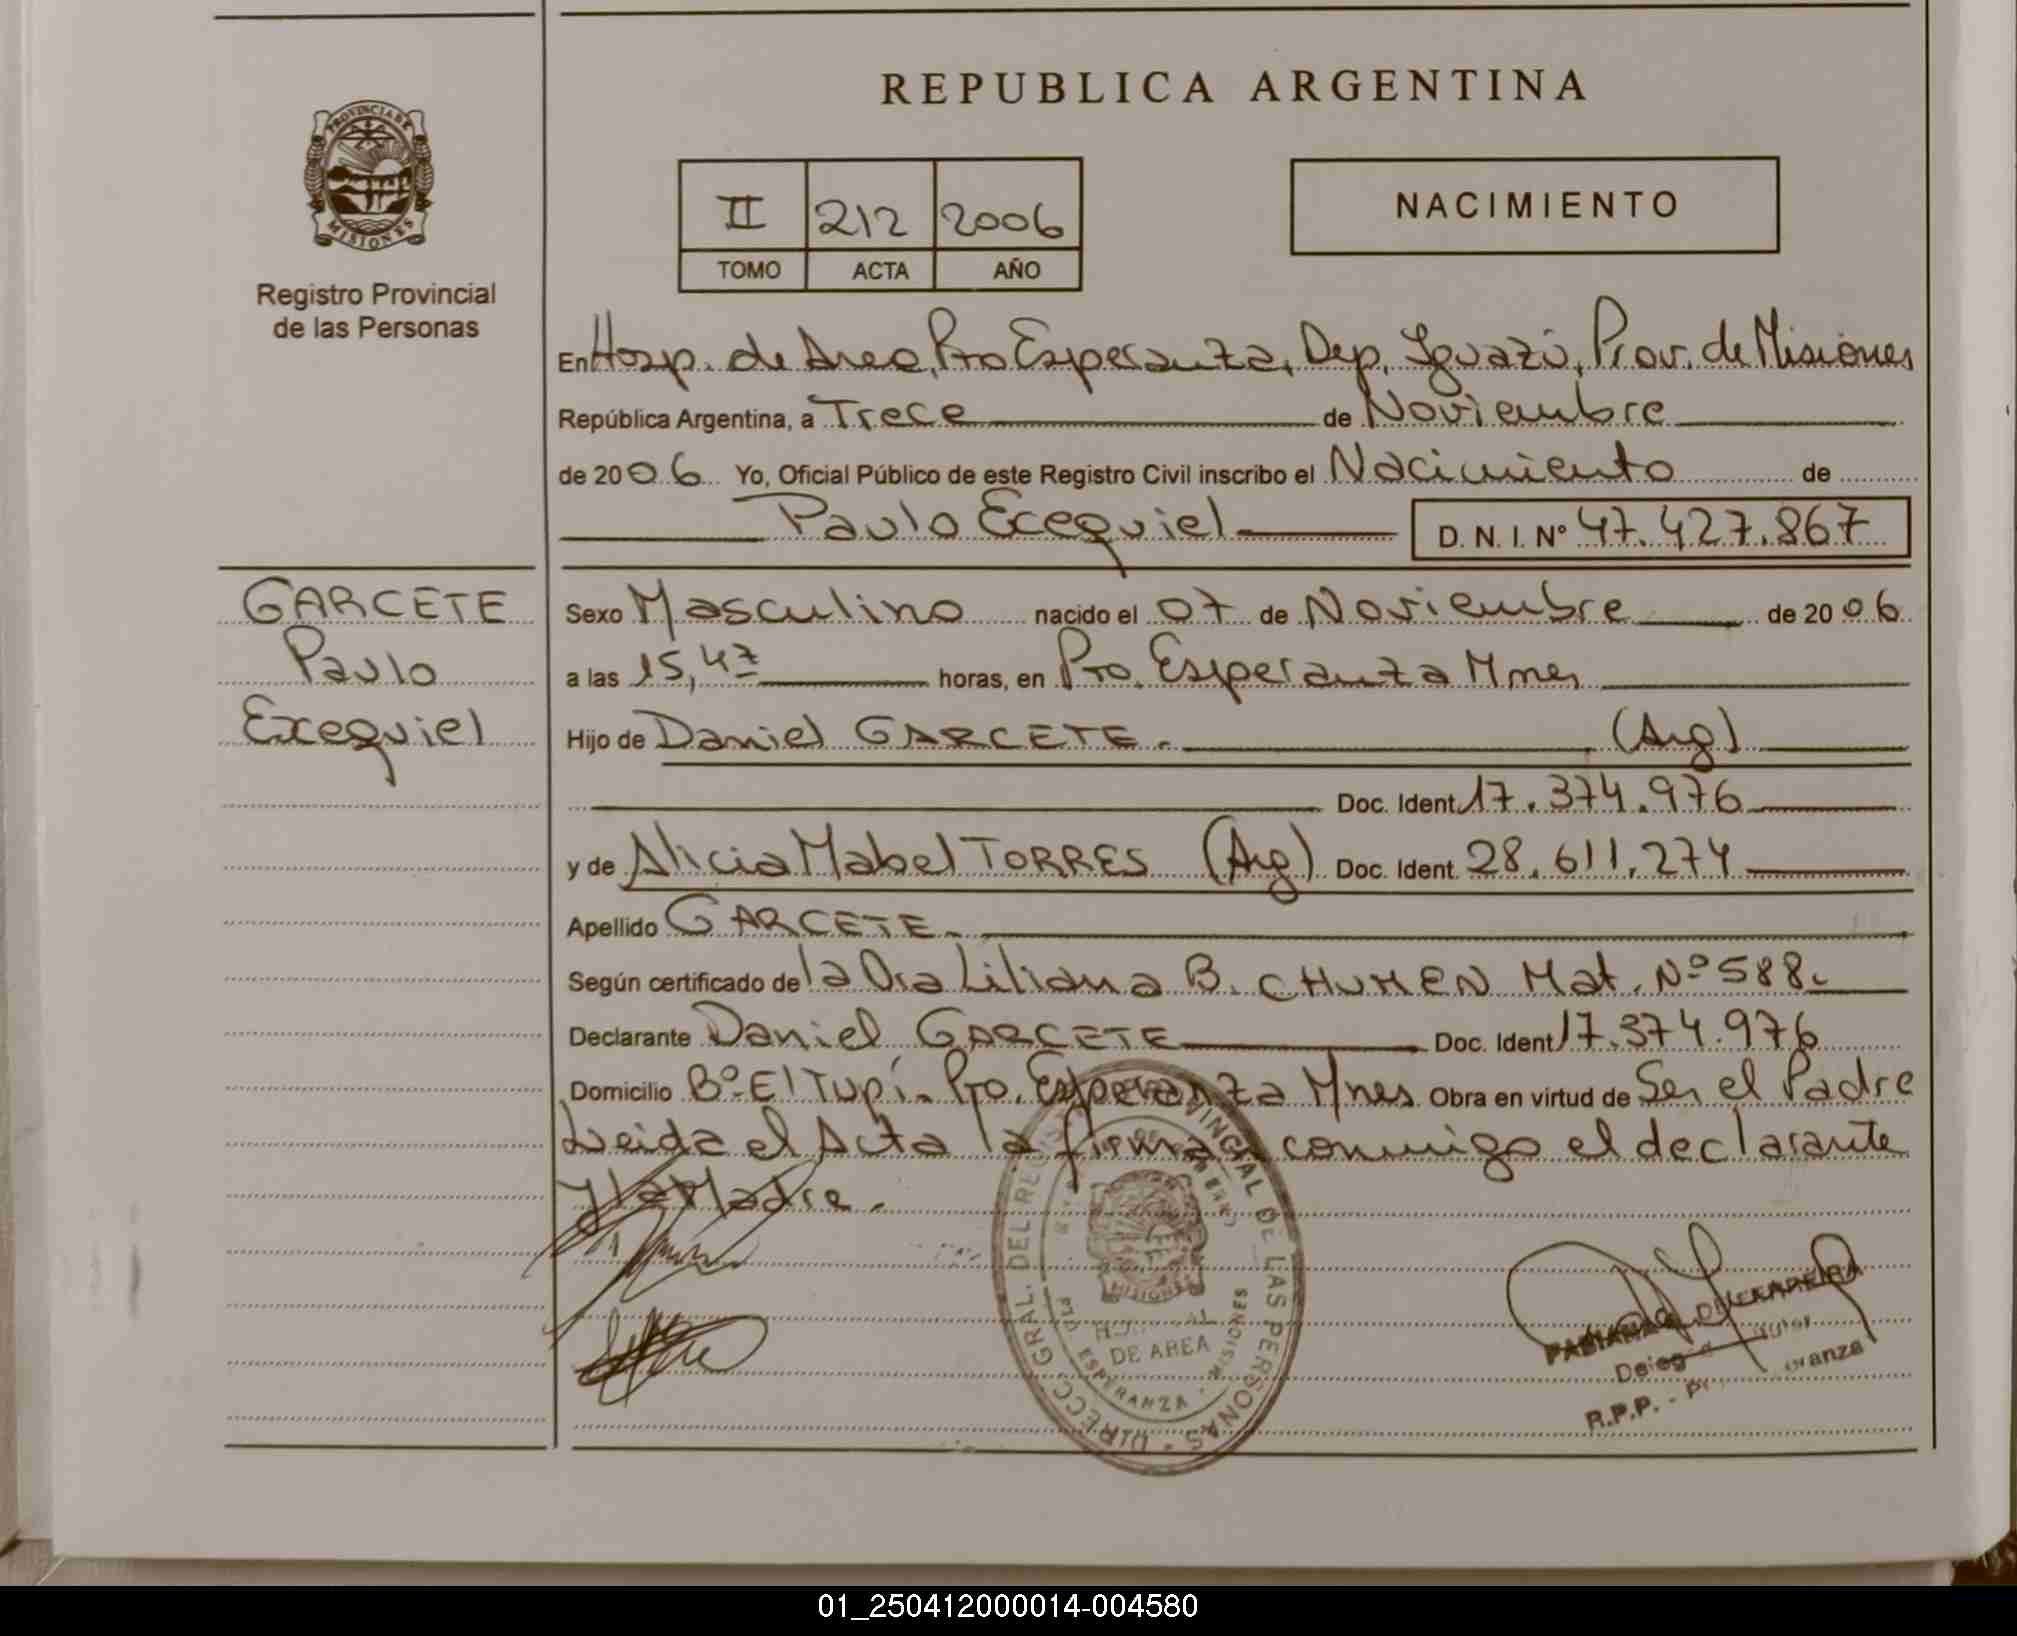 REPUBLICA ARGENTINA
PROVINCIA DE
MISIONES
Registro Provincial
de las Personas
II 212 2006
TOMO ACTA AÑO
NACIMIENTO
En Hosp. de Area, Pto Esperanza, Dep. Iguazú, Prov. de Misiones
República Argentina, a Trece de Noviembre
de 2006 Yo, Oficial Público de este Registro Civil inscribo el Nacimiento de
Paulo Ecequiel D. N. I. Nº 47.427.867
GARCETE
Paulo
Exequiel
Sexo Masculino nacido el 07 de Noviembre de 2006
a las 15,47 horas, en Pto. Esperanza Mnes
Hijo de Daniel GARCETE. (Arg)
Doc. Ident. 17.374.976
y de Alicia Mabel TORRES (Arg) Doc. Ident. 28.611.274
Apellido GARCETE.
Según certificado de la Dra Liliana B. CHUMEN Mat. Nº 588.
Declarante Daniel GARCETE Doc. Ident 17.374.976
Domicilio Bº El Tupí. Pto. Esperanza Mnes Obra en virtud de Ser el Padre
Leida el Acta la firman conmigo el declarante
y la Madre.
DIRECC. GRAL. DEL REGISTRO PROVINCIAL DE LAS PERSONAS
MISIONES
DE AREA
ESPERANZA - MISIONES
R.P.P.
01_250412000014-004580